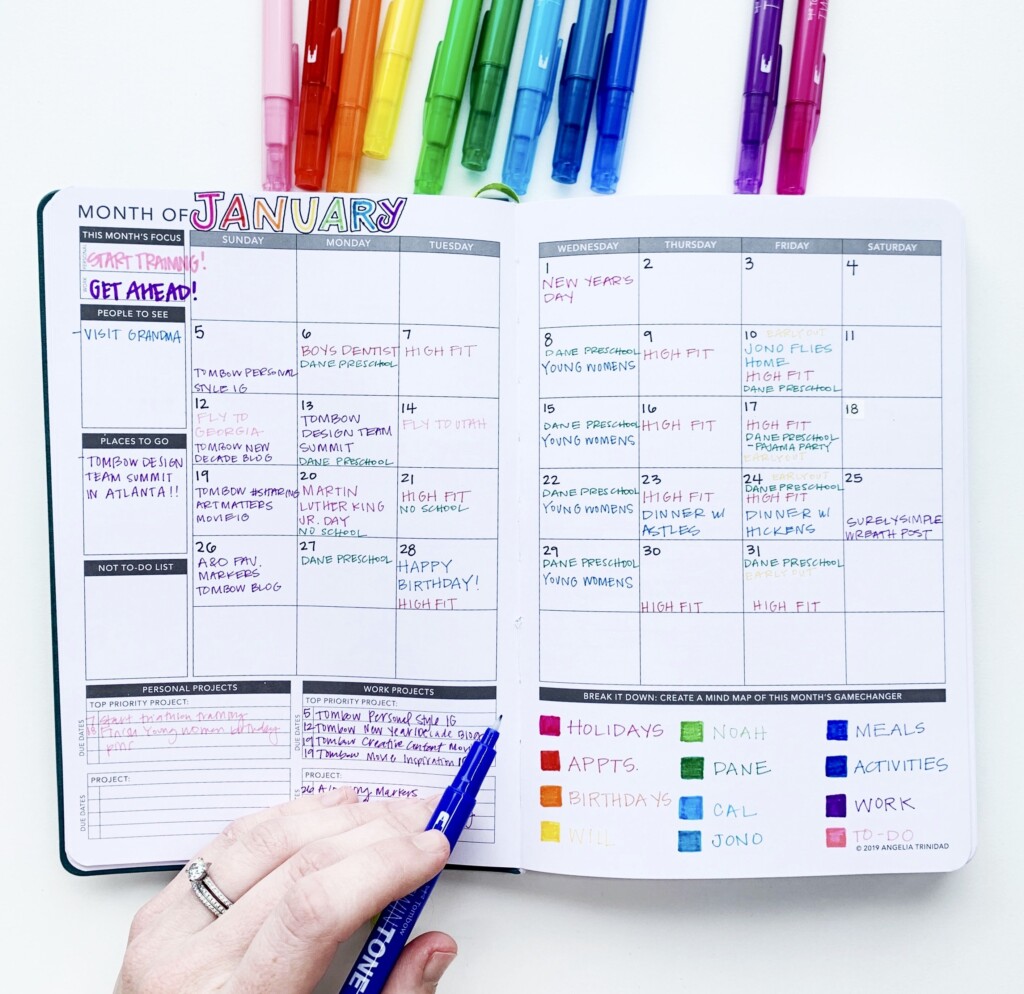 MONTH OF JANUARY
THIS MONTH'S FOCUS
START TRAINING!
GET AHEAD!
PEOPLE TO SEE
- VISIT GRANDMA
PLACES TO GO
- TOMBOW DESIGN
TEAM SUMMIT
IN ATLANTA!!
NOT TO-DO LIST
SUNDAY MONDAY TUESDAY WEDNESDAY THURSDAY FRIDAY SATURDAY
1
NEW YEAR'S
DAY
2
3
4
5
TOMBOW PERSONAL
STYLE IG
6
BOYS DENTIST
DANE PRESCHOOL
7
HIGH FIT
8
DANE PRESCHOOL
YOUNG WOMENS
9
HIGH FIT
10 EARLY OUT
JONO FLIES
HOME
HIGH FIT
DANE PRESCHOOL
11
12
FLY TO
GEORGIA
TOMBOW NEW
DECADE BLOG
13
TOMBOW
DESIGN TEAM
SUMMIT
DANE PRESCHOOL
14
FLY TO UTAH
15
DANE PRESCHOOL
YOUNG WOMENS
16
HIGH FIT
17
HIGH FIT
DANE PRESCHOOL
- PAJAMA PARTY
EARLY OUT
18
19
TOMBOW #SHARING
ART MATTERS
MOVIE IG
20
MARTIN
LUTHER KING
JR. DAY
NO SCHOOL
21
HIGH FIT
NO SCHOOL
22
DANE PRESCHOOL
YOUNG WOMENS
23
HIGH FIT
DINNER W/
ASTLES
24 EARLY OUT
DANE PRESCHOOL
HIGH FIT
DINNER W/
HICKENS
25
SURELY SIMPLE
WREATH POST
26
A&O FAV.
MARKERS
TOMBOW BLOG
27
DANE PRESCHOOL
28
HAPPY
BIRTHDAY!
HIGH FIT
29
DANE PRESCHOOL
YOUNG WOMENS
30
HIGH FIT
31
DANE PRESCHOOL
EARLY OUT
HIGH FIT
PERSONAL PROJECTS
TOP PRIORITY PROJECT:
DUE DATES
7 Start triathlon training
Finish Young women birthday
PROJECT:
DUE DATES
WORK PROJECTS
TOP PRIORITY PROJECT:
DUE DATES
5 Tombow Personal Style IG
12 Tombow New Year/Decade Blog
19 Tombow Creative Content
19 Tombow Movie Inspiration
PROJECT:
26 Markers
BREAK IT DOWN: CREATE A MIND MAP OF THIS MONTH'S GAMECHANGER
HOLIDAYS
APPTS.
BIRTHDAYS
WILL
NOAH
DANE
CAL
JONO
MEALS
ACTIVITIES
WORK
TO-DO
© 2019 ANGELIA TRINIDAD
Tombow
TWINTONE